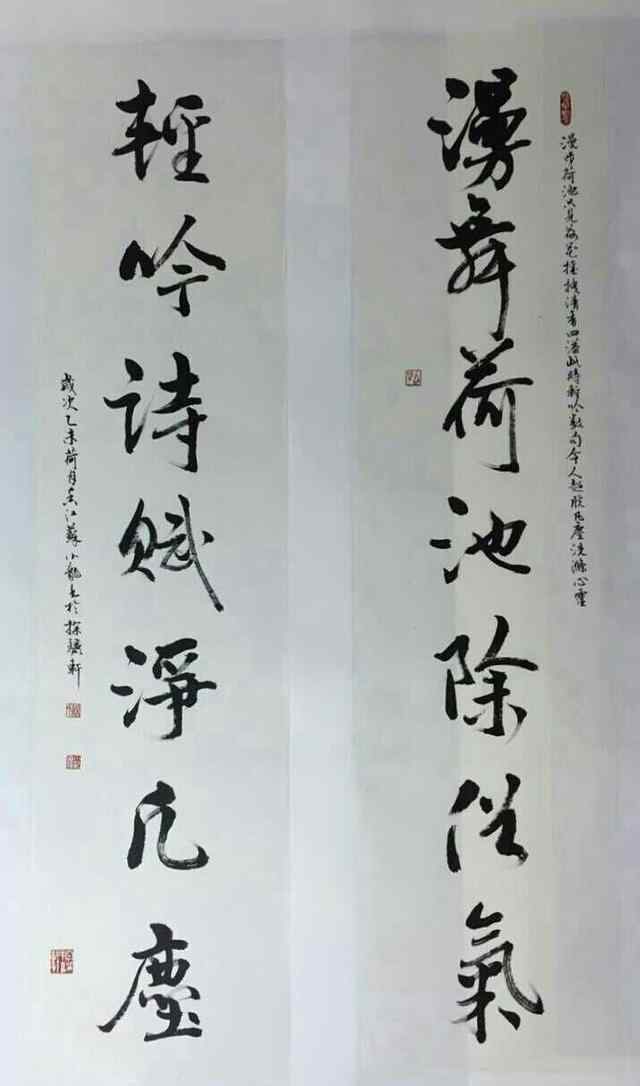 漫步荷池只見荷花搖拽清香四溢此時吟數句令人超脫凡塵洗滌心靈
漫舞荷池除俗氣
輕吟詩賦淨凡塵
歲次乙未荷月香江蘇小龍書於探驪軒